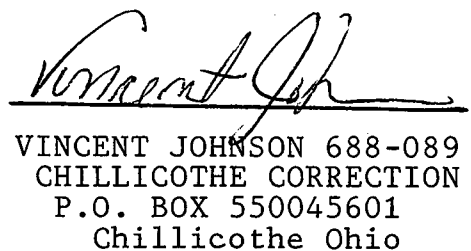 Vincent Joh
VINCENT JOHNSON 688-089
CHILLICOTHE CORRECTION
P.O. BOX 550045601
Chillicothe Ohio